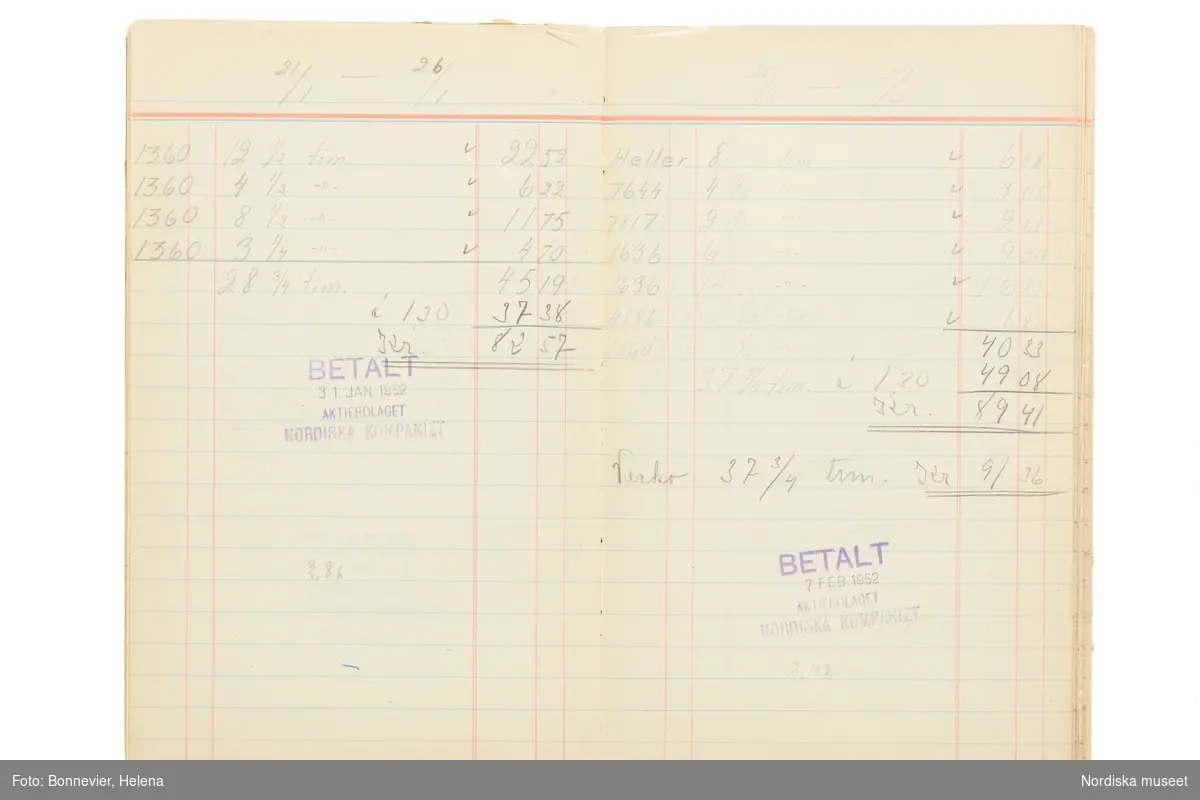 21/1 — 26/1
1360 12 1/2 tim. ✓ 22 52
1360 4 1/2 -"- ✓ 6 22
1360 8 1/2 -"- ✓ 11 75
1360 3 1/4 -"- ✓ 4 70
28 3/4 tim. 45 19
á 130 37 38
Kr. 82 57
BETALT
31. JAN 1952
AKTIEBOLAGET
NORDISKA KOMPANIET
2,86
Heller 8 tim. ✓ 6 48
7644 4 1/2 -"- ✓ 3 05
7817 2 -"- ✓ 2 68
1636 6 -"- ✓ 9 50
1636 -"- ✓ 16
✓ 1
40 33
37 3/4 tim. á 130 49 08
Kr. 89 41
Verko 37 3/4 tim. Kr 91 36
BETALT
7 FEB 1952
AKTIEBOLAGET
NORDISKA KOMPANIET
2,42
Foto: Bonnevier, Helena
Nordiska museet